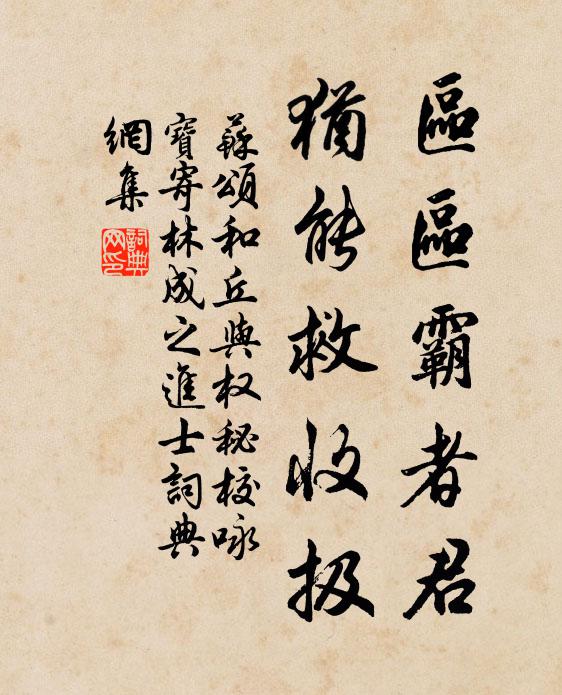 區區霸者君
猶能救收扱
蘇頌和丘與权秘校咏
寶寄林成之進士詞典
網集
詞典
网印